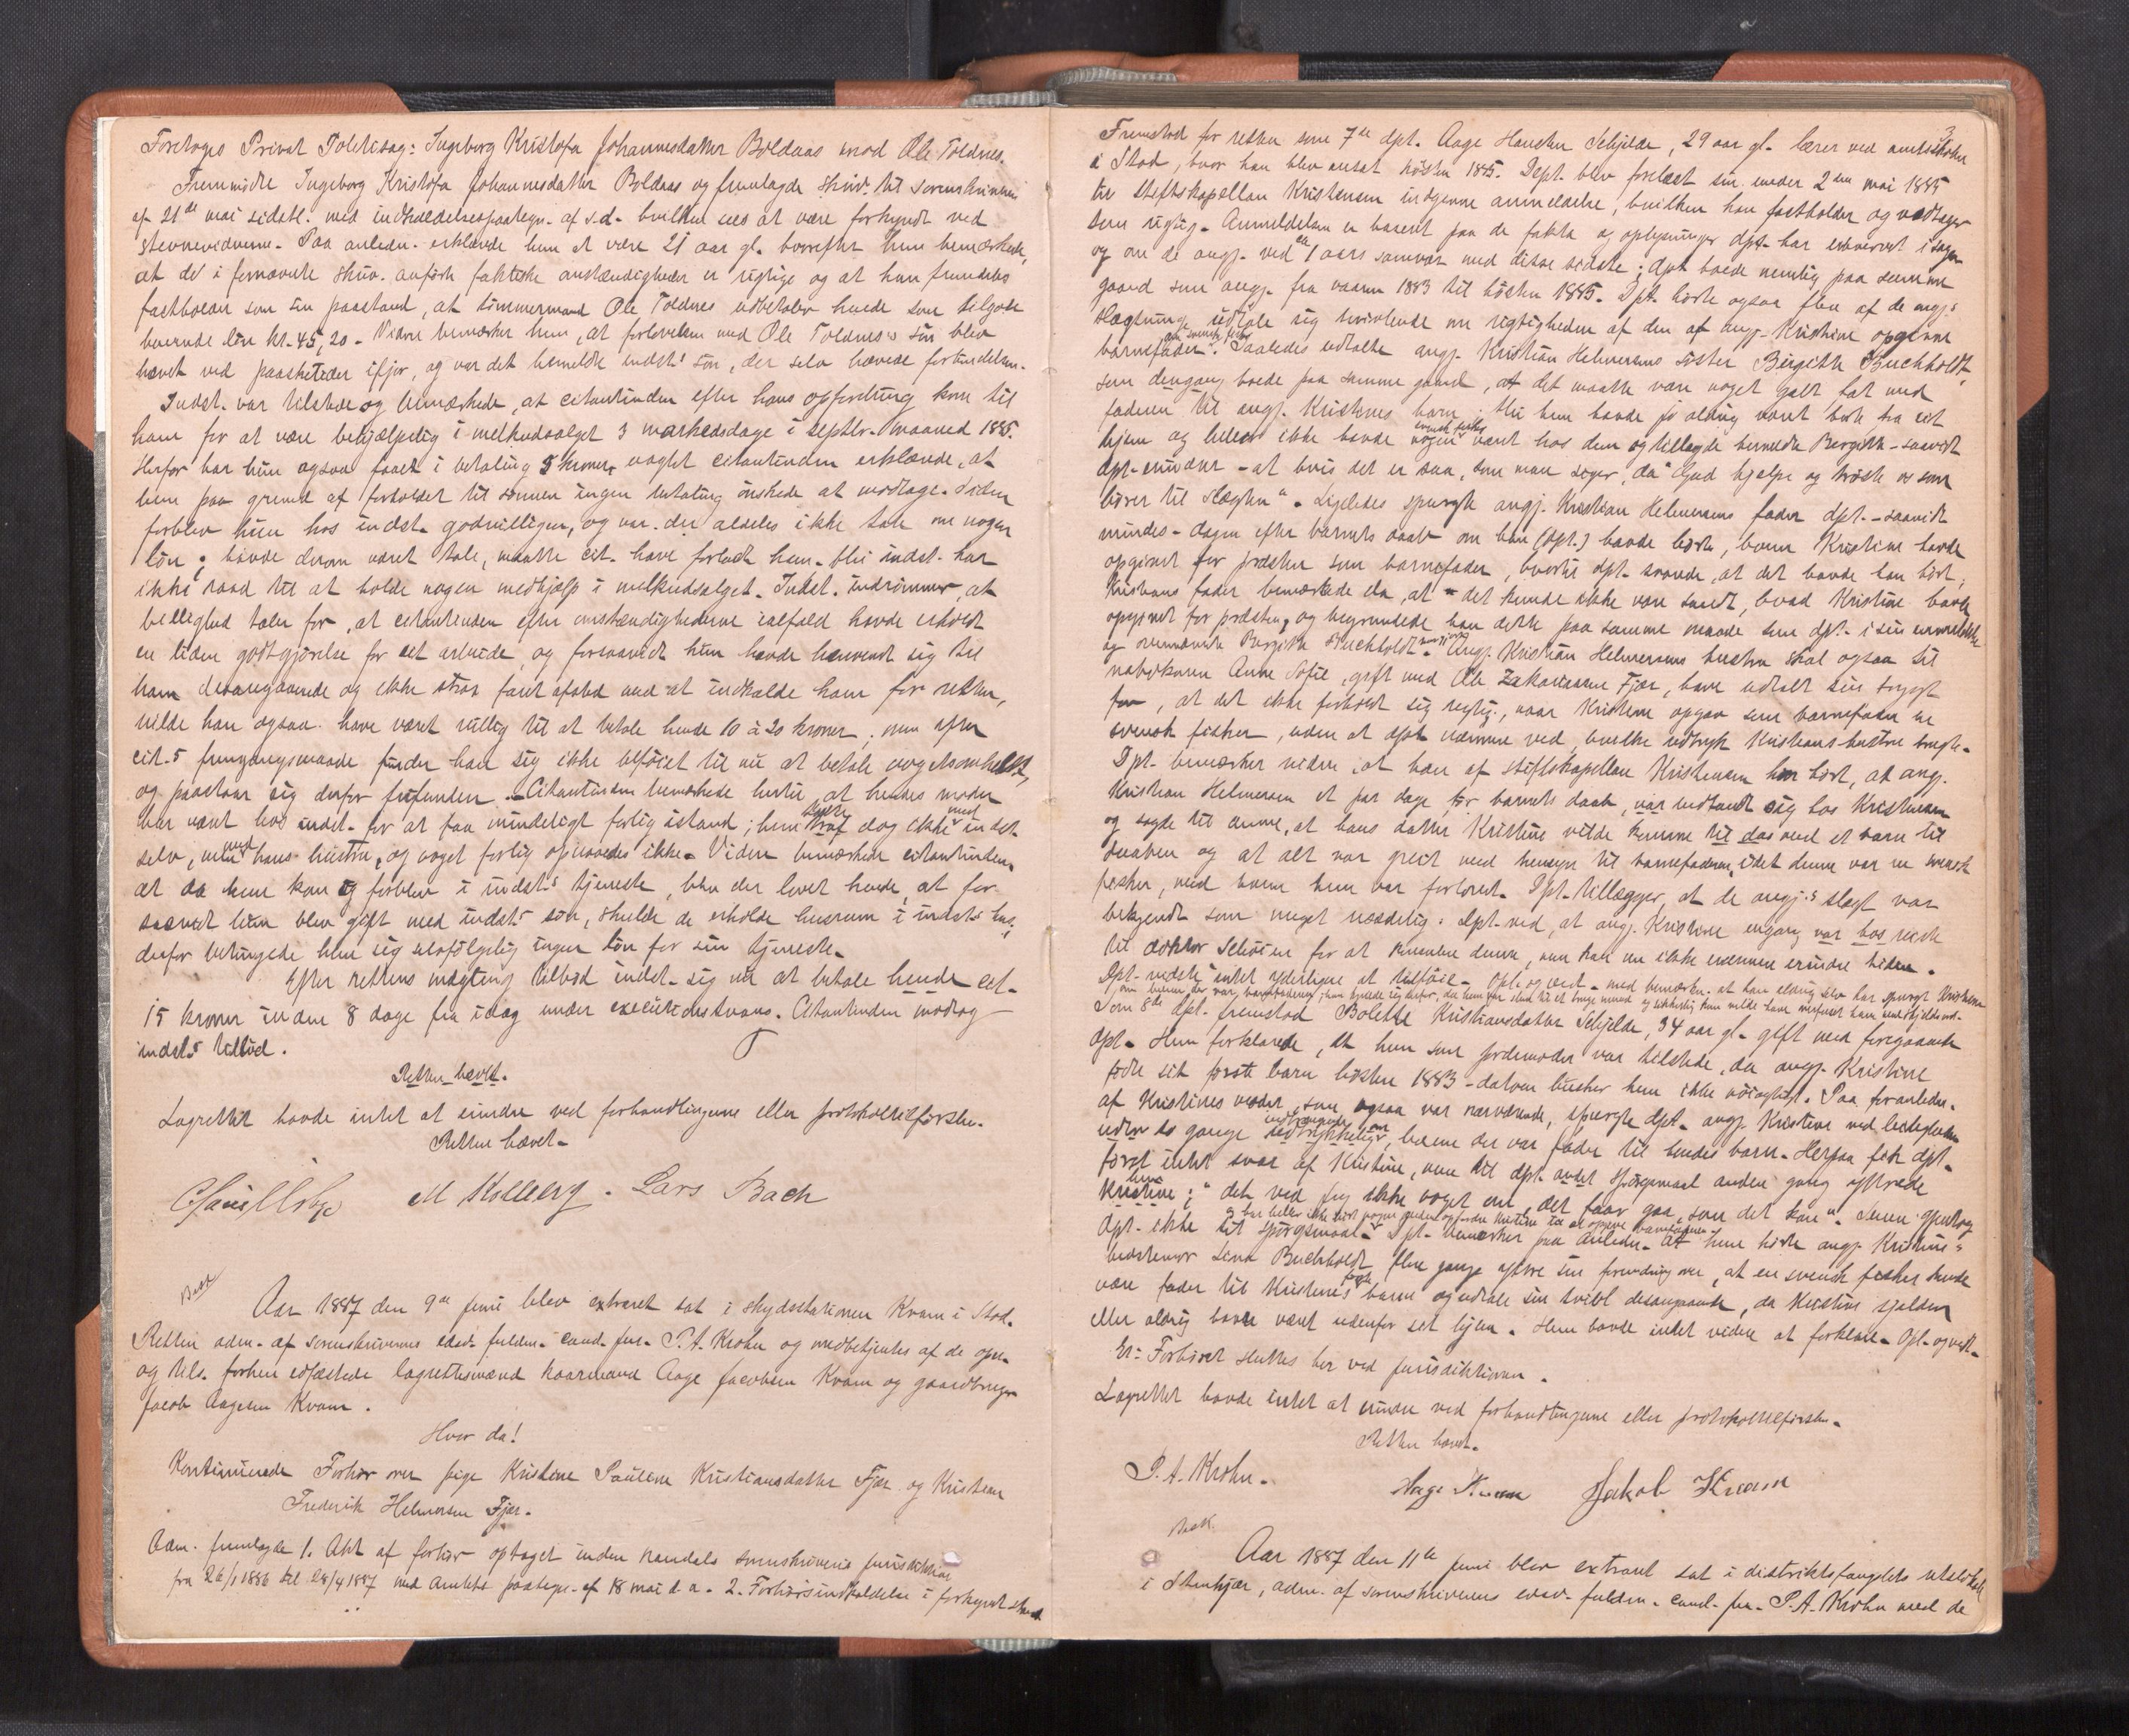 Foretoges Privat Politisag: Ingeborg Kristofa Johannesdatter Boldaas mod Ole Toldnes.
Fremmødte Ingeborg Kristofa Johannesdatter Boldaas og fremlagde skriv. til sorenskriveren
af 21de mai sidstl. med indkaldelsespaategn. af s.d. hvilken sees at være forkyndt ved
stevnevidnerne. Paa anledn. erklærede hun at være 21 aar gl. hvorefter hun bemærkede,
at de i fornævnte skriv. anførte faktiske omstændigheder er rigtige og at hun fremdeles
fastholder som sin paastand, at tømmermand Ole Toldnes udbetaler hende som tilgode
havende løn kr. 45,20. Videre bemærker hun, at forlovelsen med Ole Toldnes's søn blev
hævet ved paasketider ifjor, og var det bemeldte indst.s søn, der selv hævede forbindelsen.
Indst. var tilstede og bemærkede, at citantinden efter hans opfordring kom til
ham for at være behjælpelig i melkeudsalget 3 markedsdage i septbr. maaned 1885.
Herfor har hun ogsaa faaet i betaling 5 kroner, uagtet citantinden erklærede, at
hun paa grund af forholdet til sønnen ingen betaling ønskede at modtage. Siden
forblev hun hos indst. godvilligen, og var der aldeles ikke tale om nogen
løn; havde derom været tale, maatte cit. have forladt ham, thi indst. har
ikke raad til at holde nogen medhjælp i melkeudsalget. Indst. indrømmer, at
billighed taler for, at citantinden efter omstændighederne ialfald havde erholdt
en liden godtgjørelse for sit arbeide, og forsaavidt hun havde henvendt sig til
ham desangaaende og ikke strax faret afsted med at indkalde ham for retten,
vilde han ogsaa have været villig til at betale hende 10 à 20 kroner; men efter
cit.s fremgangsmaade finder han sig ikke beføiet til nu at betale nogetsomhelst,
og paastaar sig derfor frifunden. Citantinden bemærkede hertil, at hendes moder
har været hos indst. for at faa mindeligt forlig istand; hun talte dog ikke med indst.
selv, men med hans hustru, og noget forlig opnaaedes ikke. Videre bemærkede citantinden,
at da hun kom og forblev i indst.s tjeneste, blev der lovet hende, at for-
saavidt hun blev gift med indst.s søn, skulde de erholde husrum i indst.s hus;
derfor betingede hun sig selvfølgelig ingen løn for sin tjeneste.
Efter rettens mægling tilbød indst. sig nu at betale hende cit.
15 kroner inden 8 dage fra idag under executionstvang. Citantinden modtog
indst.s tilbud.
Retten hævet.
Lagrettet havde intet at erindre ved forhandlingerne eller protokoltilførslen.
Retten hævet.
M Kolberg. Lars Bach
Aar 1887 den 9de juni blev extraret sat i skydsstationen Kvam i Stod.
Retten adm. af sorenskriverens edsv. fuldm. cand. jur. P. A. Krohn og medbetjentes af de opn.
og tils. forhen edfæstede lagrettesmænd kaarmand Aage Jacobsen Kvam og gaardbruger
Jacob Aagesen Kvam.
Hvor da!
Kontinuerede Forhør over pige Kristine Pauline Kristiansdatter Fjær og Kristian
Frederik Helmersen Fjær.
Adm. fremlagde 1. Akt af forhør optaget inden Namdals sorenskriveris jurisdiktion
fra 26/1 1886 til 28/4 1887 med amtets paategn. af 18 mai d. a. 2. Forhørsindkaldelse i forkyndt stand.
3
Fremstod for retten som 7de dpt. Aage Hansen Schjelde, 29 aar gl. lærer ved amtsskolen
i Stod, hvor han blev ansat høsten 1885. Dept. blev forelæst sin under 2den mai 1885
til stiftskapellan Kristensen indgivne anmeldelse, hvilken han fastholder og vedtager
som rigtig. Anmeldelsen er baseret paa de fakta og oplysninger dpt. har erhvervet i sagen
og om de angj. ved ca 1 aars samvær med disse sidste; dpt. boede nemlig paa samme
gaard som angj. fra vaaren 1883 til høsten 1885. Dpt. hørte ogsaa flere af de angj.s
slægtninge udtale sig tvivlende om rigtigheden af den af angj. Kristine opgivne
barnefader. Saaledes udtalte angj. Kristian Helmersens søster Birgitte Buchholdt,
som dengang boede paa samme gaard, at det maatte være noget galt fat med
faderen til angj. Kristines barn, thi hun havde jo aldrig været borte fra sit
hjem og heller ikke havde nogen svensk fisker været hos dem og tillagde bemeldte Bergitte - saavidt
dpt. erindrer - at hvis det er saa, som man siger, da "Gud hjelpe og trøste os som
hører til slægten". Ligeledes spurgte angj. Kristian Helmersens fader dpt. - saavidt
mindes - dagen efter barnets daab om han (dpt.) havde hørt, hvem Kristine havde
opgivet for præsten som barnefader, hvortil dpt. svarede, at det havde han hørt;
Kristians fader bemærkede da, at det kunde ikke være sandt, hvad Kristine havde
opgivet for præsten, og begrundede han dette paa samme maade som dpt. i sin anmeldelse
og ovennævnte Birgitte Buchholdt. Angj. Kristian Helmersens hustru skal ogsaa til
nabokonen Anne Sofie, gift med Ole Zakariassen Fjær, have udtalt sin frygt
for, at det ikke forholdt sig rigtig, naar Kristine opgav som barnefader en
svensk fisker, uden at dpt. nærmere ved, hvilke udtryk Kristians hustru brugte.
Dpt. bemærker videre, at han af stiftskapellan Kristensen har hørt, at angj.
Kristian Helmersen et par dage før barnets daab, var indfandt sig hos Kristensen
og sagde til denne, at hans datter Kristine vilde komme til des med et barn til
daaben og at alt var greit med hensyn til barnefaderen, idet denne var en svensk
fisker, med hvem hun var forlovet. Dpt. tillægger, at de angj.s slægt var
belgendt som meget usædelig. Dpt. ved, at angj. Kristine engang var hos
til doktor Schøien for at konsulere denne, men kan nu ikke nærmere erindre tiden.
Dpt. vidste intet yderligere at tilføie. Opl. og vedt. med bemærkn. at han aldrig selv har spurgt Kristine
om hvem der var barnefaderen,
Som 8de dpt. fremstod Bolette Kristiansdatter Schjelde, 34 aar gl. gift med foregaaende
dpt. Hun forklarede, at hun som jordemoder var tilstede, da angj. Kristine
fødte sit første barn høsten 1883 - datoen husker hun ikke nøiagtigt. Paa foranledn.
af Kristines moder, som ogsaa var nærværende, spurgte dpt. angj. Kristine ved leiligheden
to gange indtrængende om, hvem der var fader til hendes barn. Herpaa fik dpt.
først intet svar af Kristine, men til dpt. andet spørgsmaal anden gang ytrede
Kristine: "det ved jeg ikke noget om, det faar gaa, som det kan". Senere gjentog
dpt. ikke sit spørgsmaal. Dpt. bemærker paa anledn. at hun hørte angj. Kristines
bedstemor Lina Buchholdt flere gange ytre sin forundring over, at en svensk fisker skulde
være fader til Kristines barn og udtale sin tvivl desangaaende, da Kristine sjelden
eller aldrig havde været udenfor sit hjem. Hun havde intet videre at forklare. Opl. og vedt.
Er: Forhøret sluttes her ved jurisdiktionen.
Lagrettet havde intet at erindre ved forhandlingerne eller protokoltilførslen.
Retten hævet.
P. A. Krohn. Aage Kvam Jakob Kvam
Aar 1887 den 11te juni blev extraret sat i distriktsfængslets retslokale
i Stenkjær, adm. af sorenskriverens edsv. fuldm. cand. jur. P. A. Krohn med de